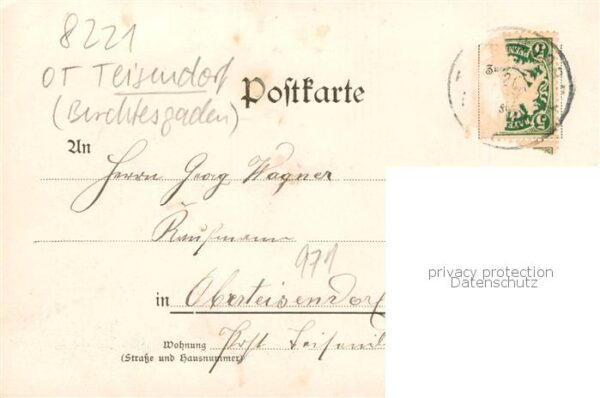 8221
OT Teisendorf
(Berchtesgaden)
Postkarte
An
Herrn Georg Wagner
Kaufmann
971
in Oberteisendorf
Wohnung Post Teisend
(Straße und Hausnummer)
privacy protection
Datenschutz